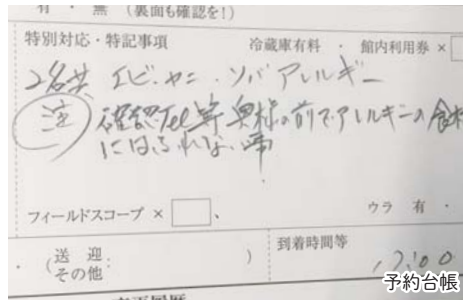 有 ・ 無 (裏面も確認を!)
特別対応・特記事項
冷蔵庫有料 ・ 館内利用券 ×
2名共 エビ・カニ・ソバ アレルギー
注 確認Tel等 奥様の前でアレルギーの食材
にはふれない事
フィールドスコープ ×
、
ウラ 有 ・
・ (送 迎・
その他 )
到着時間等
17:00
予約台帳